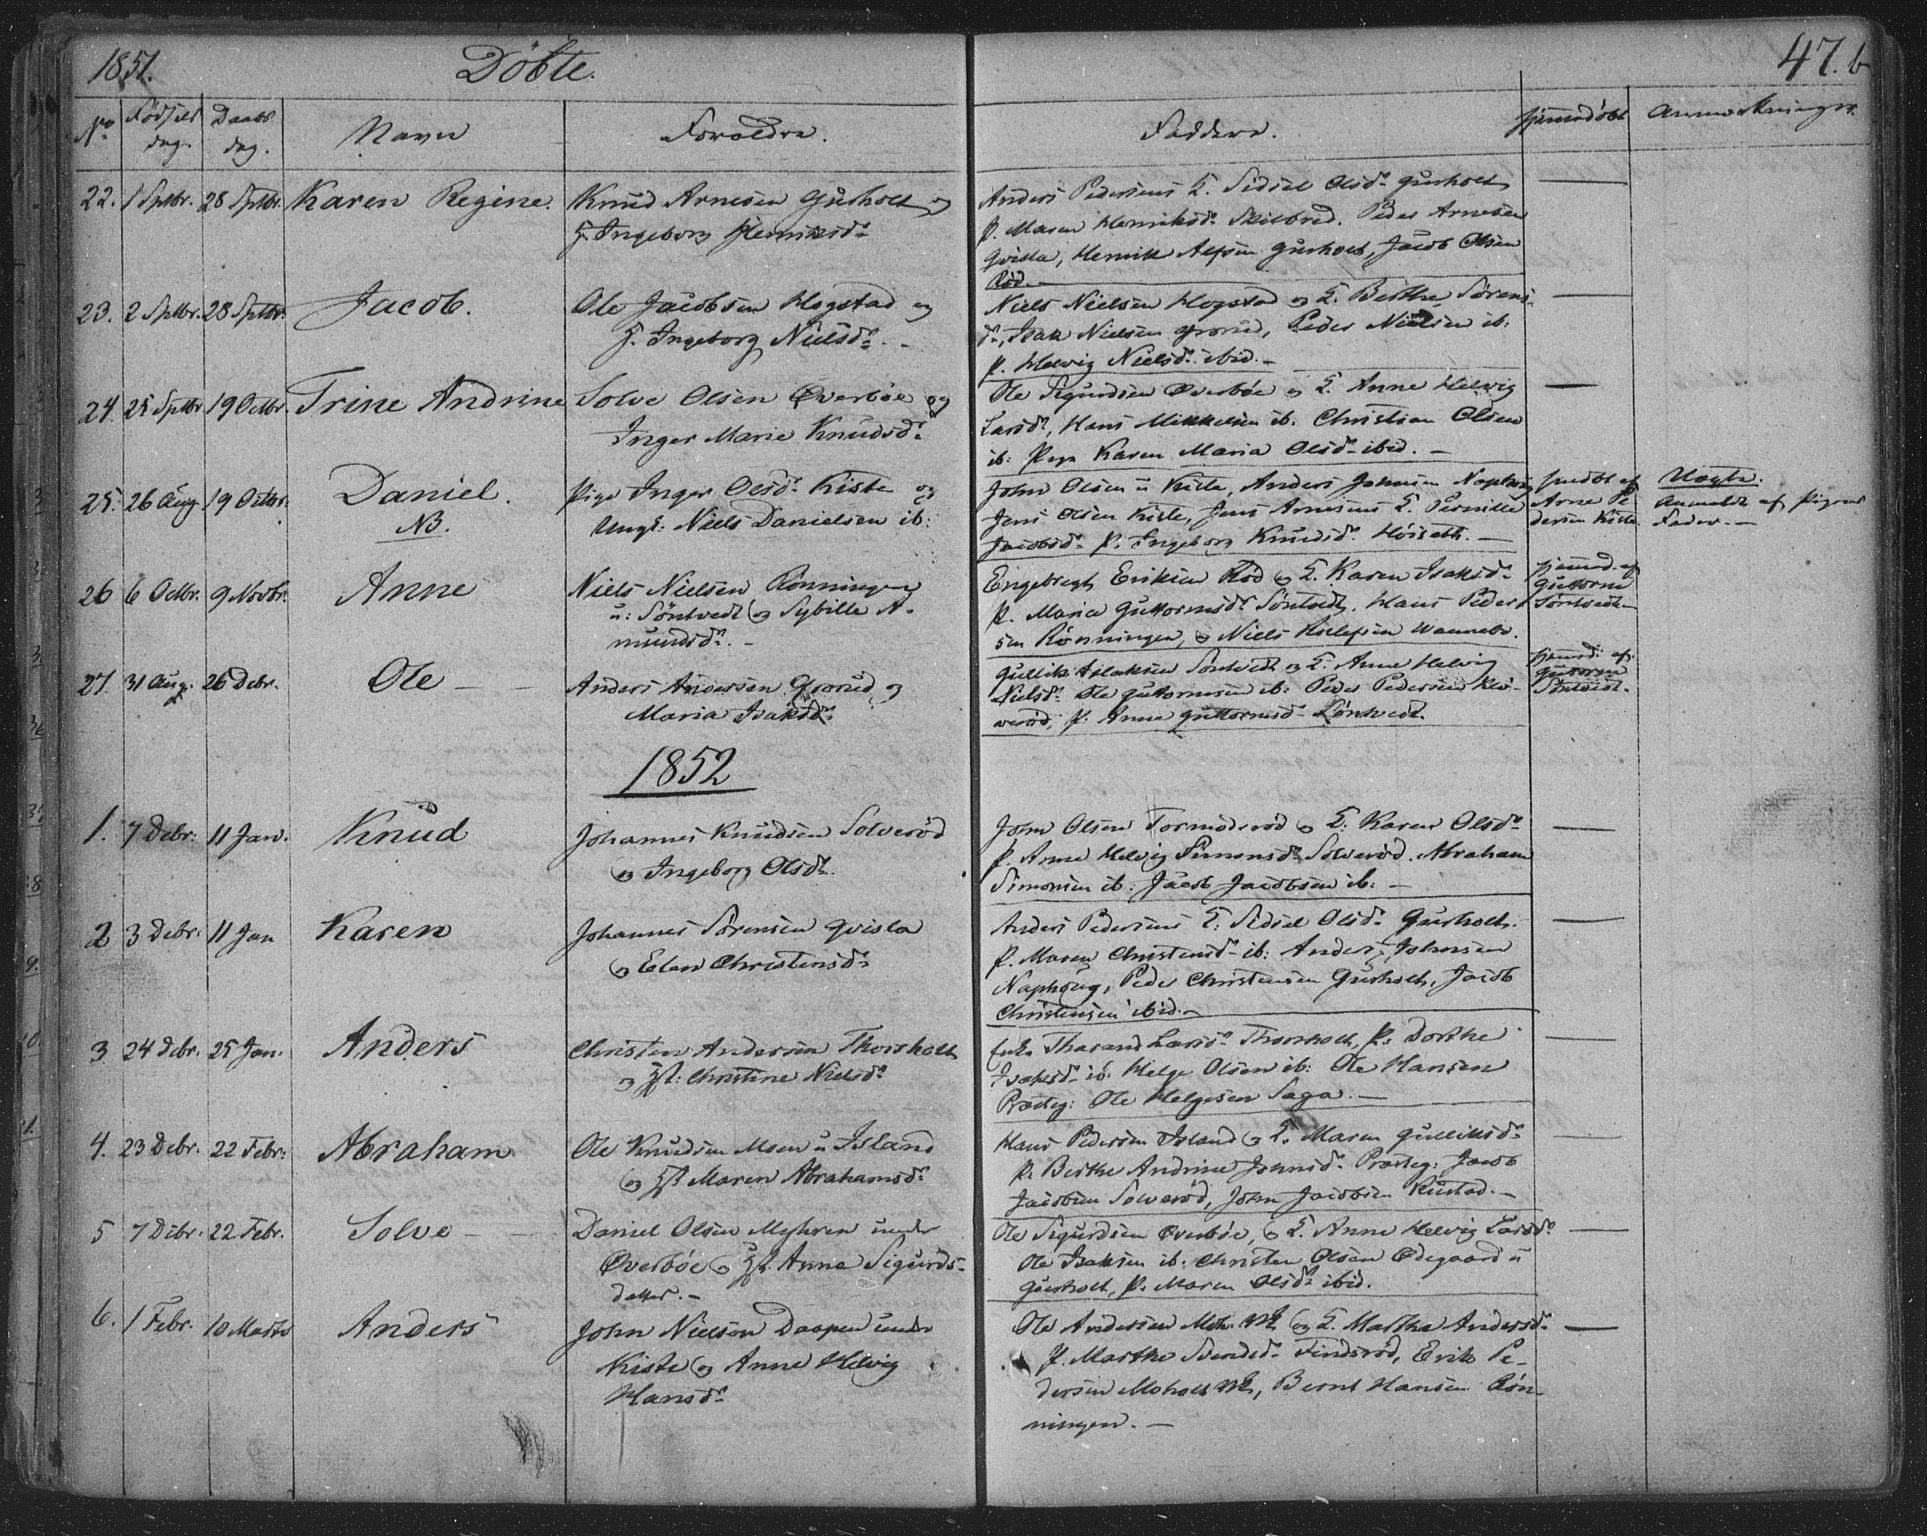 1851. Döbte. 47. b
No Födsels dag. Daabs dag. Navn Forældre. Faddere. Hjemmedöbt Anmærkninger.
22. 1 Sptbr. 28 Sptbr. Karen Regine. Knud Arnesen Gusholt og
F. Ingeborg Henriksd.
Anders Pedersens K. Sidsel Olsd. Gusholt
P. Maren Henriksd. Skilbred. Peder Arnesen
Qvisla, Henrik Alfsen Gusholt, Jacob Olsen
Röd. —
23. 2 Sptbr. 28 Sptbr. Jacob. Ole Jacobsen Hogstad og
F. Ingeborg Nielsd. —
Niels Nielsen Hogstad og K. Berthe Sörens
d., Isak Nielsen Grorud, Peder Nielsen ib:
P. Helvig Nielsd. ibid. —
24. 25 Sptbr 19 Octbr. Trine Andrine Solve Olsen Överböe og
Inger Marie Knudsd.
Ole Sigurdsen Överböe og K. Anne Helvig
Larsd., Hans Mikkelsen ib. Christian Olsen
ib: Pige Karen Maria Olsd. ibid. —
25. 26 Aug 19 Octbr. Daniel. Pige Inger Olsd. Kiste og
NB. Ungk. Niels Danielsen ib:
John Olsen u Kiste, Anders Johnsen Naphoug
Jens Olsen Kiste, Jens Arnesens K. Pernille
Jacobsd. P. Ingeborg Knudsd. Höiseth. —
hjmdöbt af
Arne Pe
dersen Kiste
Uægte.
Anmeldt af Pigens
Fader. —
26 6 Octbr. 9 Novbr. Anne Niels Nielsen Rönningen
u: Söntvedt og Sybille A-
mundsd. —
Engebregt Eriksen Röd og K. Karen Isaksd.
P. Maria Guttormsd. Söntvedt. Hans Peder
sen Rönningen, og Niels Wannebo.
hjemmd. af
Guttorm
Söntvedt
27. 31 Aug. 26 Debr. Ole — Anders Andersen Grorud og
Maria Isaksd.
Gullik Aslaksen Söntvedt og K. Anne Helvig
Nielsd. Ole Guttormsen ib: Peder Pedersen Klö-
veröd, P. Anne Guttormsd. Söntvedt.
hjemmd: af
Guttorm
Söntvedt.
1852
1. 7 Debr: 11 Jan. Knud Johannes Knudsen Solveröd
og Ingeborg Olsd.
John Olsen Tormodsröd og K: Karen Olsd.
P. Anne Helvig Simonsd. Solveröd. Abraham
Simonsen ib: Jacob Jacobsen ib: —
2 3 Debr: 11 Jan Karen Johannes Sörensen Qvisla
og Elen Christensd.
Anders Pedersens K: Sidsel Olsd. Gusholt.
P. Maren Christensd. ib: Anders Johnsen
Naphoug, Peder Christensen Gusholt, Jacob
Christensen ibid. —
3 24 Debr. 25 Jan. Anders Christen Andersen Thorsholt
og Hst: Christine Nielsd.
Enke Tharand Larsd. Thorsholt, P. Dorthe
Isaksd. ib. Helge Olsen ib: Ole Hansen
Præsteg: Ole Helgesen Saga. —
4. 23 Debr. 22 Febr: Abraham Ole Knudsen Moen u Island
og Hst. Maren Abrahamsd.
Hans Pedersen Island og K. Maren Gulliksd.
P. Berthe Andrine Johnsd. Præsteg: Jacob
Jacobsen Solveröd, John Jacobsen Rustad. —
5 7 Debr. 22 Febr. Solve — Daniel Olsen Myhren under
Överböe og Hst. Anne Sigurds-
datter. —
Ole Sigurdsen Överböe, og K. Anne Helvig Larsd.
Ole Isaksen ib. Christen Olsen Ödegaard u
Gusholt, P. Maren Olsd. ibid.
6. 1 Febr. 10 Marts Anders John Nielsen Daapen under
Kiste og Anne Helvig
Hansd.
Ole Andersen og K. Marthe Andersd.
P. Marthe Svendsd. Findsröd, Erik Pe-
dersen Moholt, Bernt Hansen Rön-
ningen. —